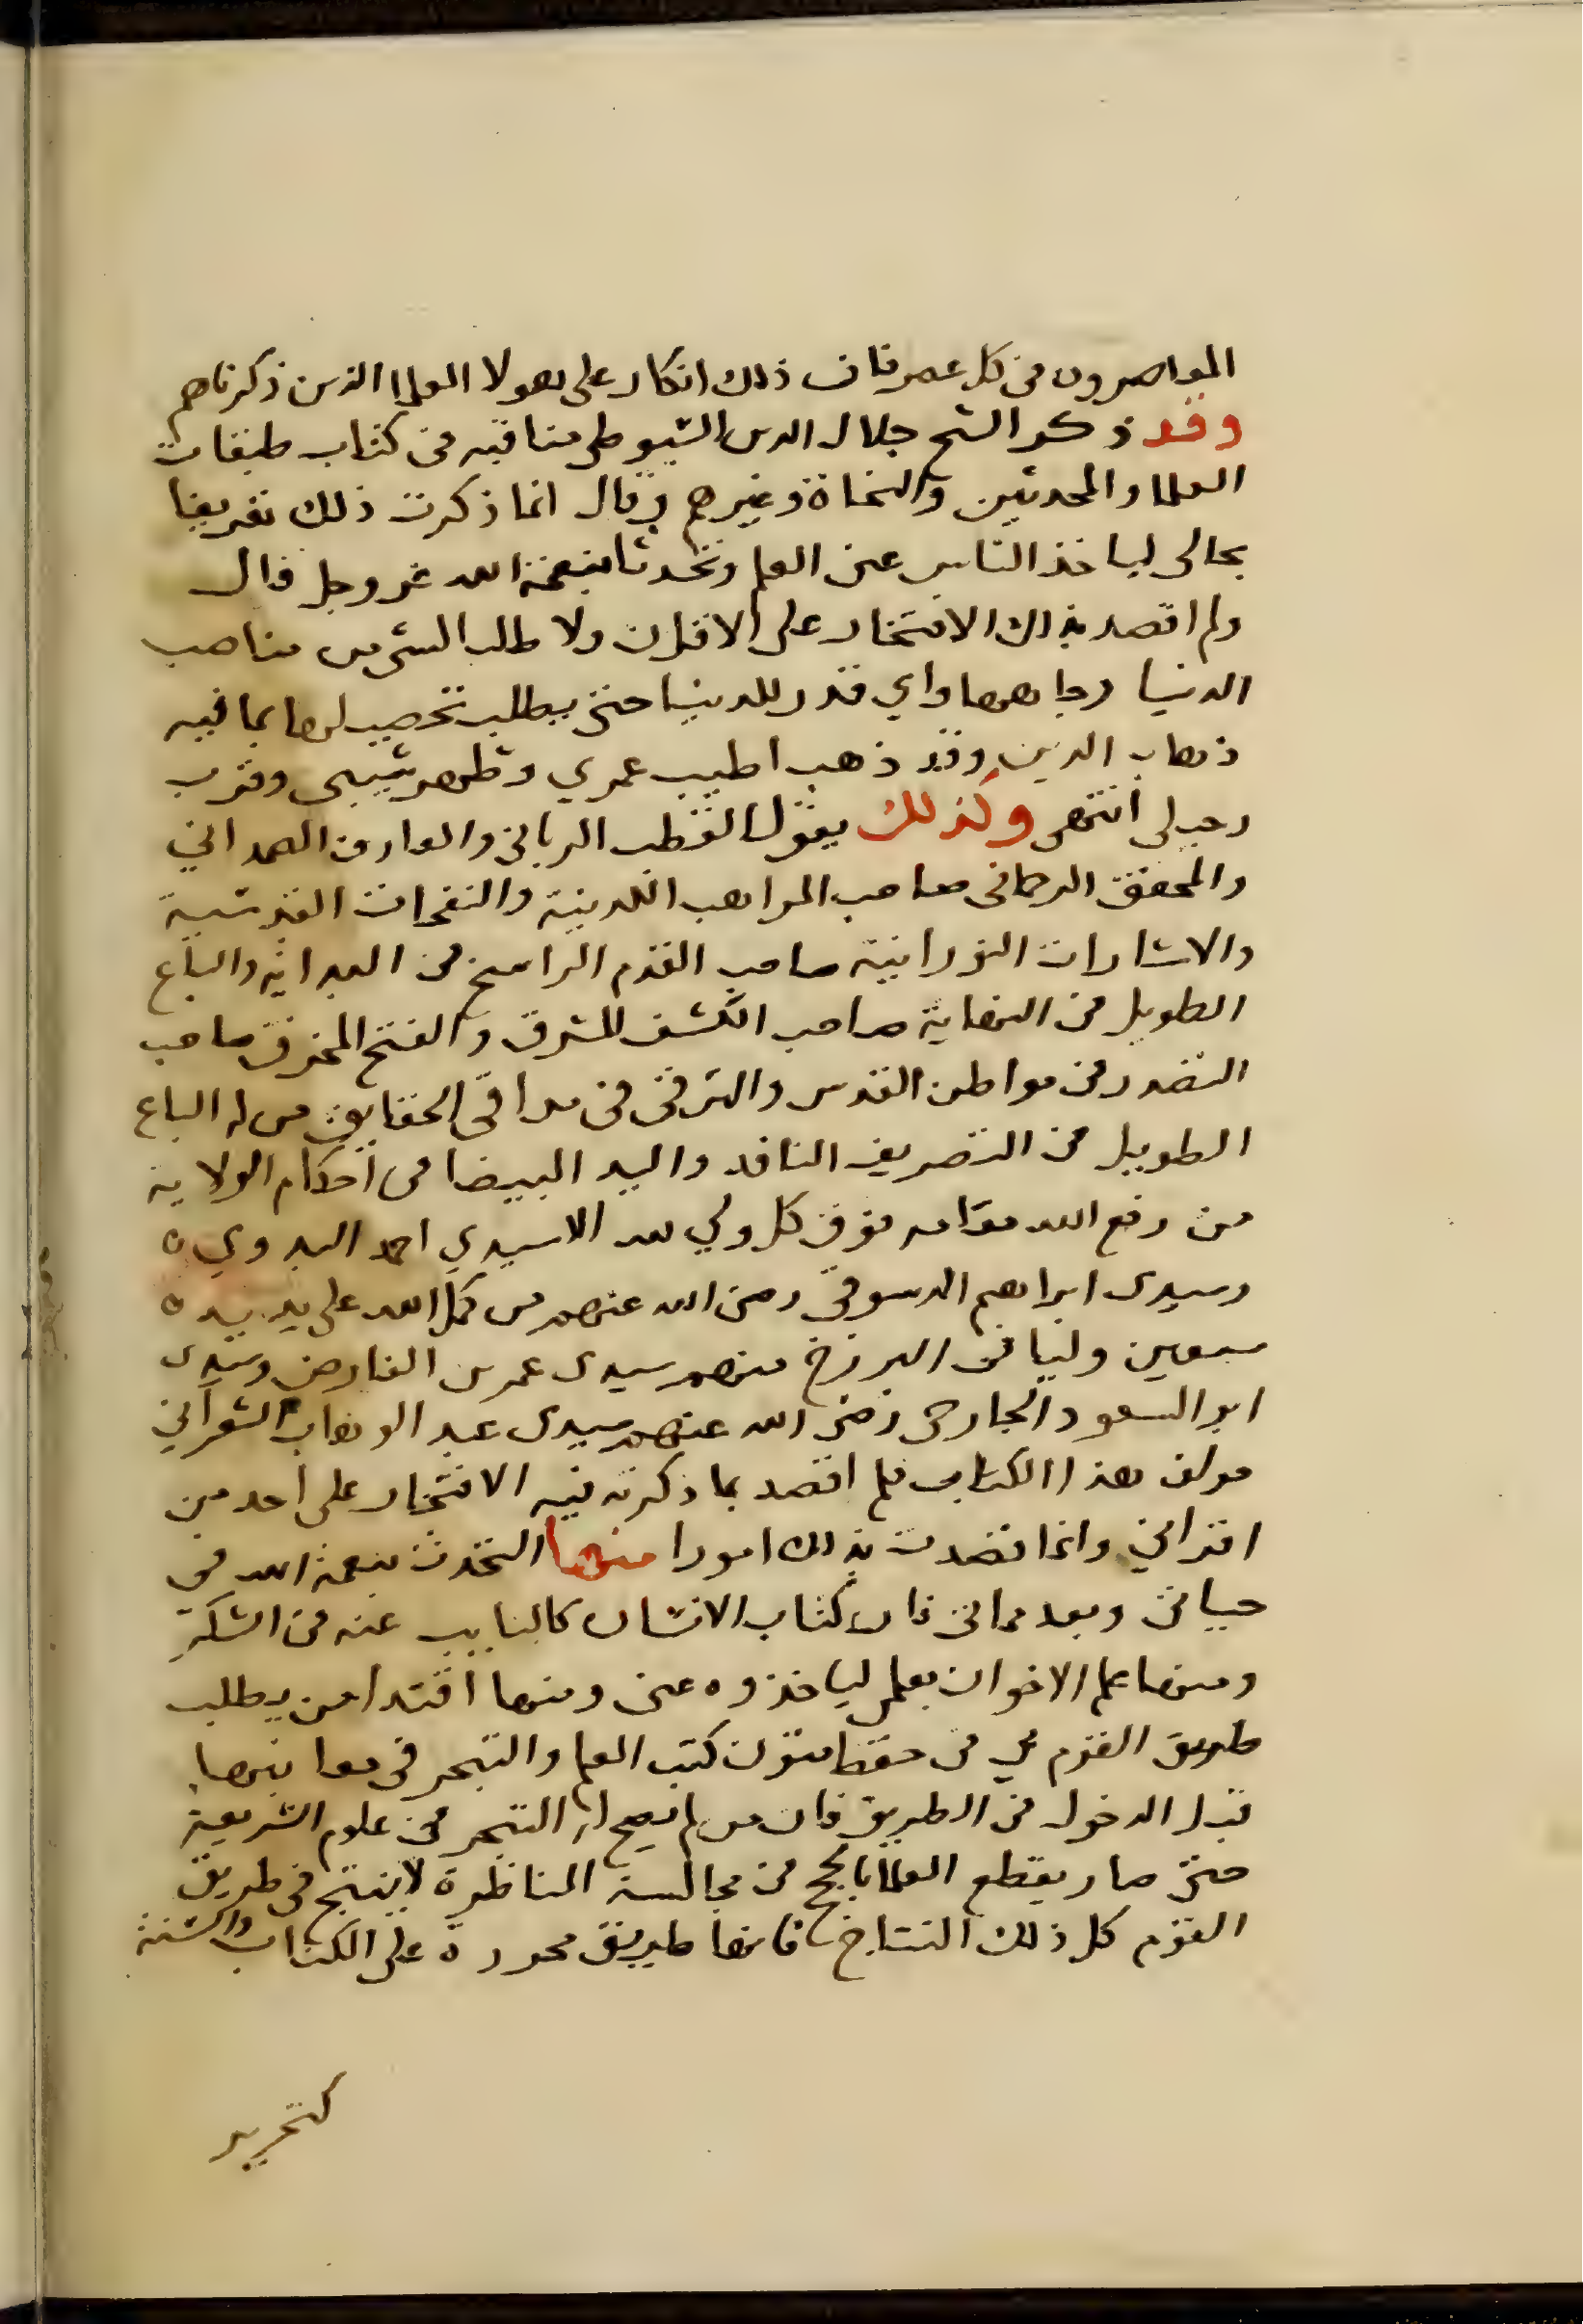 المعاصرون في كل عصر فان ذلك انكار على هولا العلما الذين ذكرناهم
وقد ذكر الشيخ جلال الدين السيوطي مناقبه في كتاب طبقات
العلما والمحدثين والنحاة وغيرهم وقال انما ذكرت ذلك تعريفا
بحالى لياخذ الناس عنى العلم وتحدثا بنعمة الله عز وجل قال
ولم اقصد بذلك الافتخار على الاقران ولا طلب الشى من مناصب
الدنيا وجاهها واي قدر للدنيا حتى يطلب تحصيلها بما فيه
ذهاب الدين وقد ذهب اطيب عمري وظهر شيبى وقرب
رحيلى انتهى وكذلك يقول القطب الربانى والعارف الصمداني
والمحقق الرحمانى صاحب المواهب اللدنية والنفحات القدسية
والاشارات النورانية صاحب القدم الراسخ في البداية والباع
الطويل في النهاية صاحب الكشف المشرق والفتح المخرق صاحب
التصدر في مواطن القدس والترقى في مراقى الحقايق من له الباع
الطويل في التصريف النافد واليد البيضا في احكام الولاية
من رفع الله مقامه فوق كل ولي لله الا سيدي احمد البدوي ه
وسيدى ابراهيم الدسوقي رضى الله عنهم من كمل الله على يد يده ه
سبعين وليا في البرزخ منهم سيدى عمر بن الفارض وسيدى
ابو السعود الجارحى رضى الله عنهم سيدى عبد الوهاب الشعراني
مولف هذا الكتاب فلم اقصد بما ذكرته فيه الافتخار على احد من
اقراني وانما قصدت بذلك امورا منها التحدث بنعمة الله في
حياتى وبعد مماتى فان كتاب الانسان كالنايب عنه في الشكر
ومنها علم الاخوان بعلمى لياخذوه عنى ومنها اقتدا من يطلب
طريق القوم بي في حفظ متون كتب العلم والتبحر في معانيها
قبل الدخول في الطريق فان من لم يصح له التبحر في علوم الشريعة
حتى صار يقطع العلما بالحجج في مجالسة المناظرة لا ينتج في طريق
القوم كل ذلك النتاج فانها طريق محررة على الكتاب والسنة
كتحرير